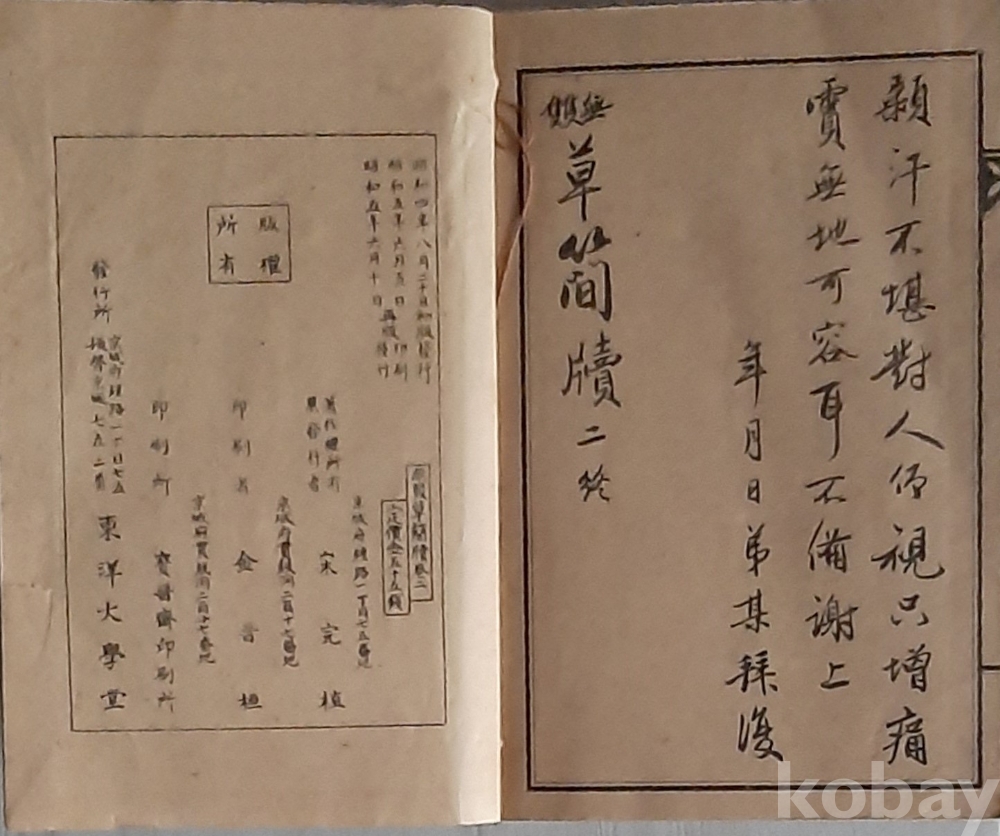 顙汗不堪對人仰視只增痛
實無地可容耳不備謝上
年月日弟某拜復
無雙草簡牘二終
昭和四年八月二十日初版發行
昭和五年六月五日再版印刷
昭和五年六月十日再版發行
版權所有
無雙草簡牘卷二
定價金五十五錢
京城府鍾路一丁目七五番地
著作權所有
兼發行者
宋完植
京城府貫鐵洞二百十七番地
印刷者 金晋桓
京城府貫鐵洞二百十七番地
印刷所 普齋印刷所
發行所
京城府鍾路一丁目七五
振替京城七五二番
東洋大學堂
kobay